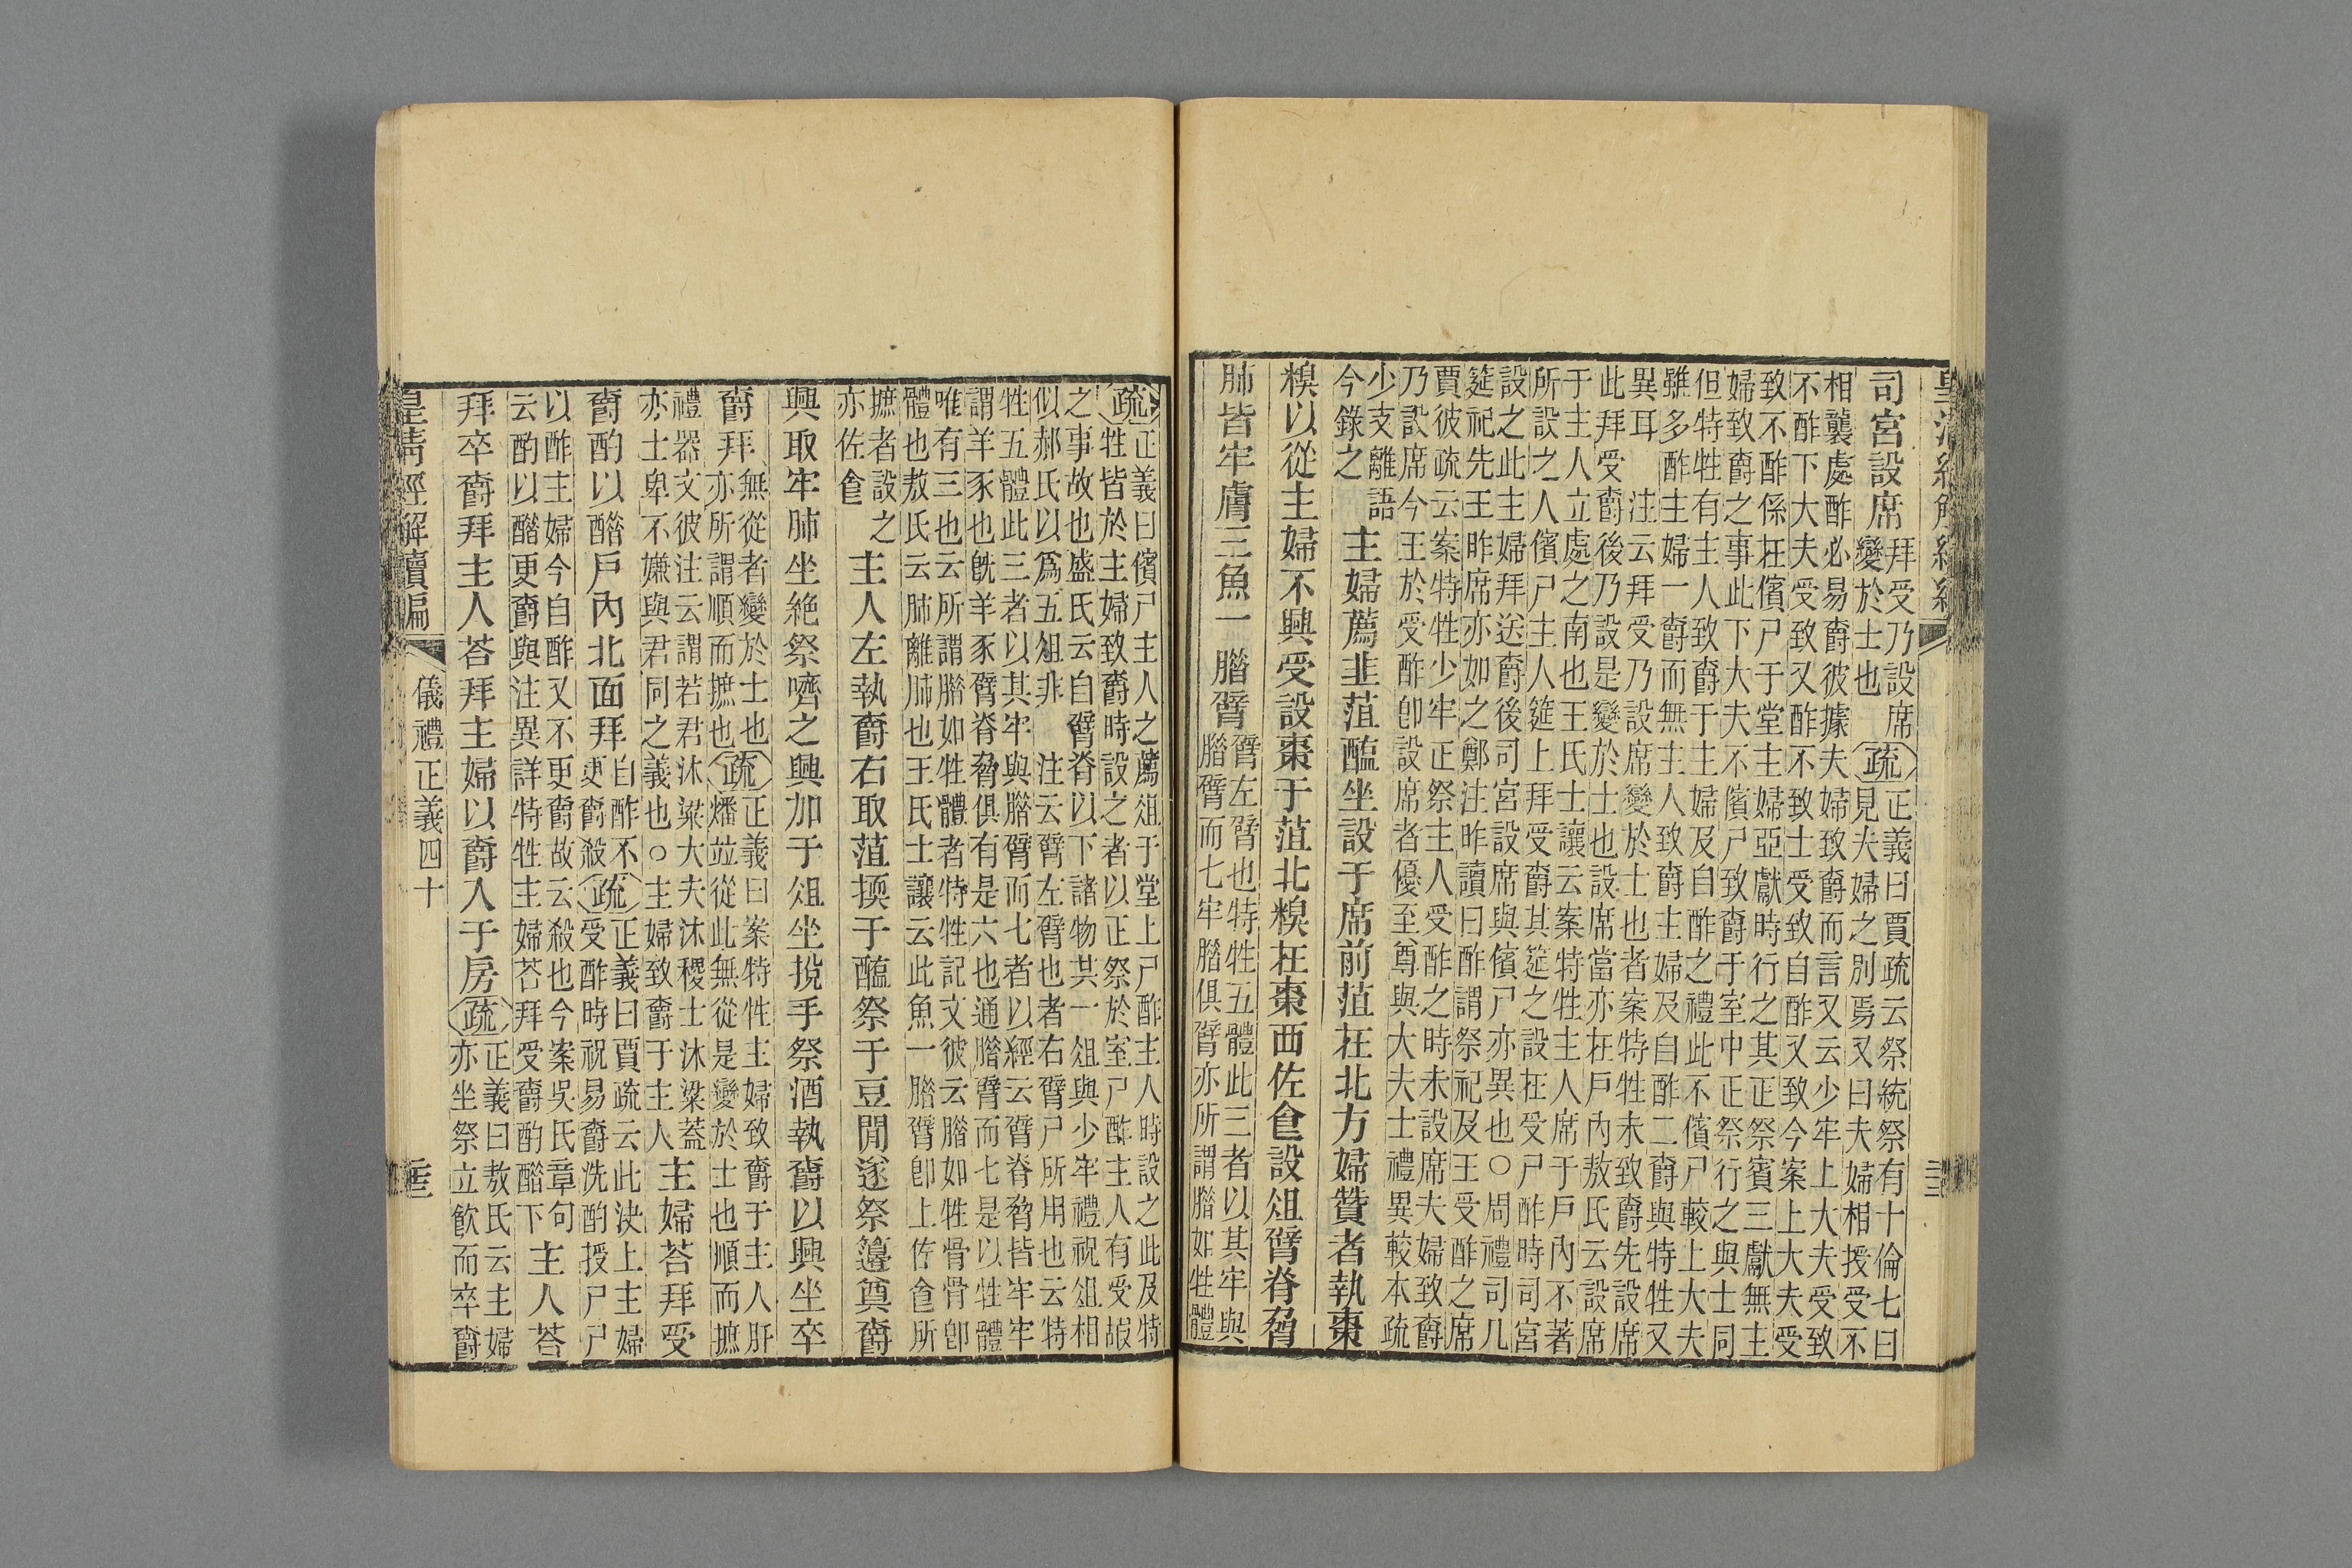 皇清經解續編
司宮設席 拜受乃設席
變於士也 疏 正義曰賈疏云祭統祭有十倫七曰
見夫婦之別焉又曰夫婦相授受不
相襲處酢必易爵彼據夫婦致爵而言又云少牢上大夫受致
不酢下大夫受致又酢不致士受致自酢又致今案上大夫受
致不酢係在儐尸于堂主婦亞獻時行之其正祭賓三獻無主
婦致爵之事此下大夫不儐尸致爵于室中正祭行之與士同
但特牲有主人致爵于主婦及自酢之禮此不儐尸較上大夫
雖多酢主婦一爵而無主人致爵主婦及自酢二爵與特牲又
異耳 注云拜受乃設席變於士也者案特牲未致爵先設席
此拜受爵後乃設是變於士也設席當亦在戶內敖氏云設席
于主人立處之南也王氏士讓云案特牲主人席于戶內不著
所設之人儐尸主人筵上拜受爵其筵之設在受尸酢時司宮
設之此主婦拜送爵後司宮設席與儐尸亦異也○周禮司几
筵祀先王昨席亦如之鄭注昨讀曰酢謂祭祀及王受酢之席
賈彼疏云案特牲少牢正祭主人受酢之時未設席夫婦致爵
乃設席今王於受酢卽設席者優至尊與大夫士禮異較本疏
少支離語
今錄之 主婦薦韭菹醢坐設于席前菹在北方婦贊者執棗
糗以從主婦不興受設棗于菹北糗在棗西佐食設俎臂脊脅
肺皆牢膚三魚一腊臂 臂左臂也特牲五體此三者以其牢與
腊臂而七牢腊俱臂亦所謂腊如牲體
疏 正義曰儐尸主人之薦俎于堂上尸酢主人時設之此及特
牲皆於主婦致爵時設之者以正祭於室尸酢主人有受嘏
之事故也盛氏云自臂脊以下諸物共一俎與少牢禮祝俎相
似郝氏以爲五俎非 注云臂左臂也者右臂尸所用也云特
牲五體此三者以其牢與腊臂而七者以經云臂脊脅皆牢牢
謂羊豕也旣羊豕臂脊脅俱有是六也通腊臂而七是以牲體
唯有三也云所謂腊如牲體者特牲記文彼云腊如牲骨骨卽
體也敖氏云肺離肺也王氏士讓云此魚一腊臂卽上佐食所
摭者設之
亦佐食 主人左執爵右取菹㨎于醢祭于豆閒遂祭籩奠爵
興取牢肺坐絶祭嚌之興加于俎坐挩手祭酒執爵以興坐卒
爵拜 無從者變於士也
亦所謂順而摭也 疏 正義曰案特牲主婦致爵于主人肝
燔竝從此無從是變於士也順而摭
禮器文彼注云謂若君沐粱大夫沐稷士沐粱蓋
亦士卑不嫌與君同之義也○主婦致爵于主人 主婦荅拜受
爵酌以醋戶內北面拜 自酢不
更爵殺 疏 正義曰賈疏云此決上主婦
受酢時祝易爵洗酌授尸尸
以酢主婦今自酢又不更爵故云殺也今案吳氏章句
云酌以醋更爵與注異詳特牲主婦荅拜受爵酌醋下 主人荅
拜卒爵拜主人荅拜主婦以爵入于房 疏 正義曰敖氏云主婦
亦坐祭立飮而卒爵
皇清經解續編
儀禮正義四十